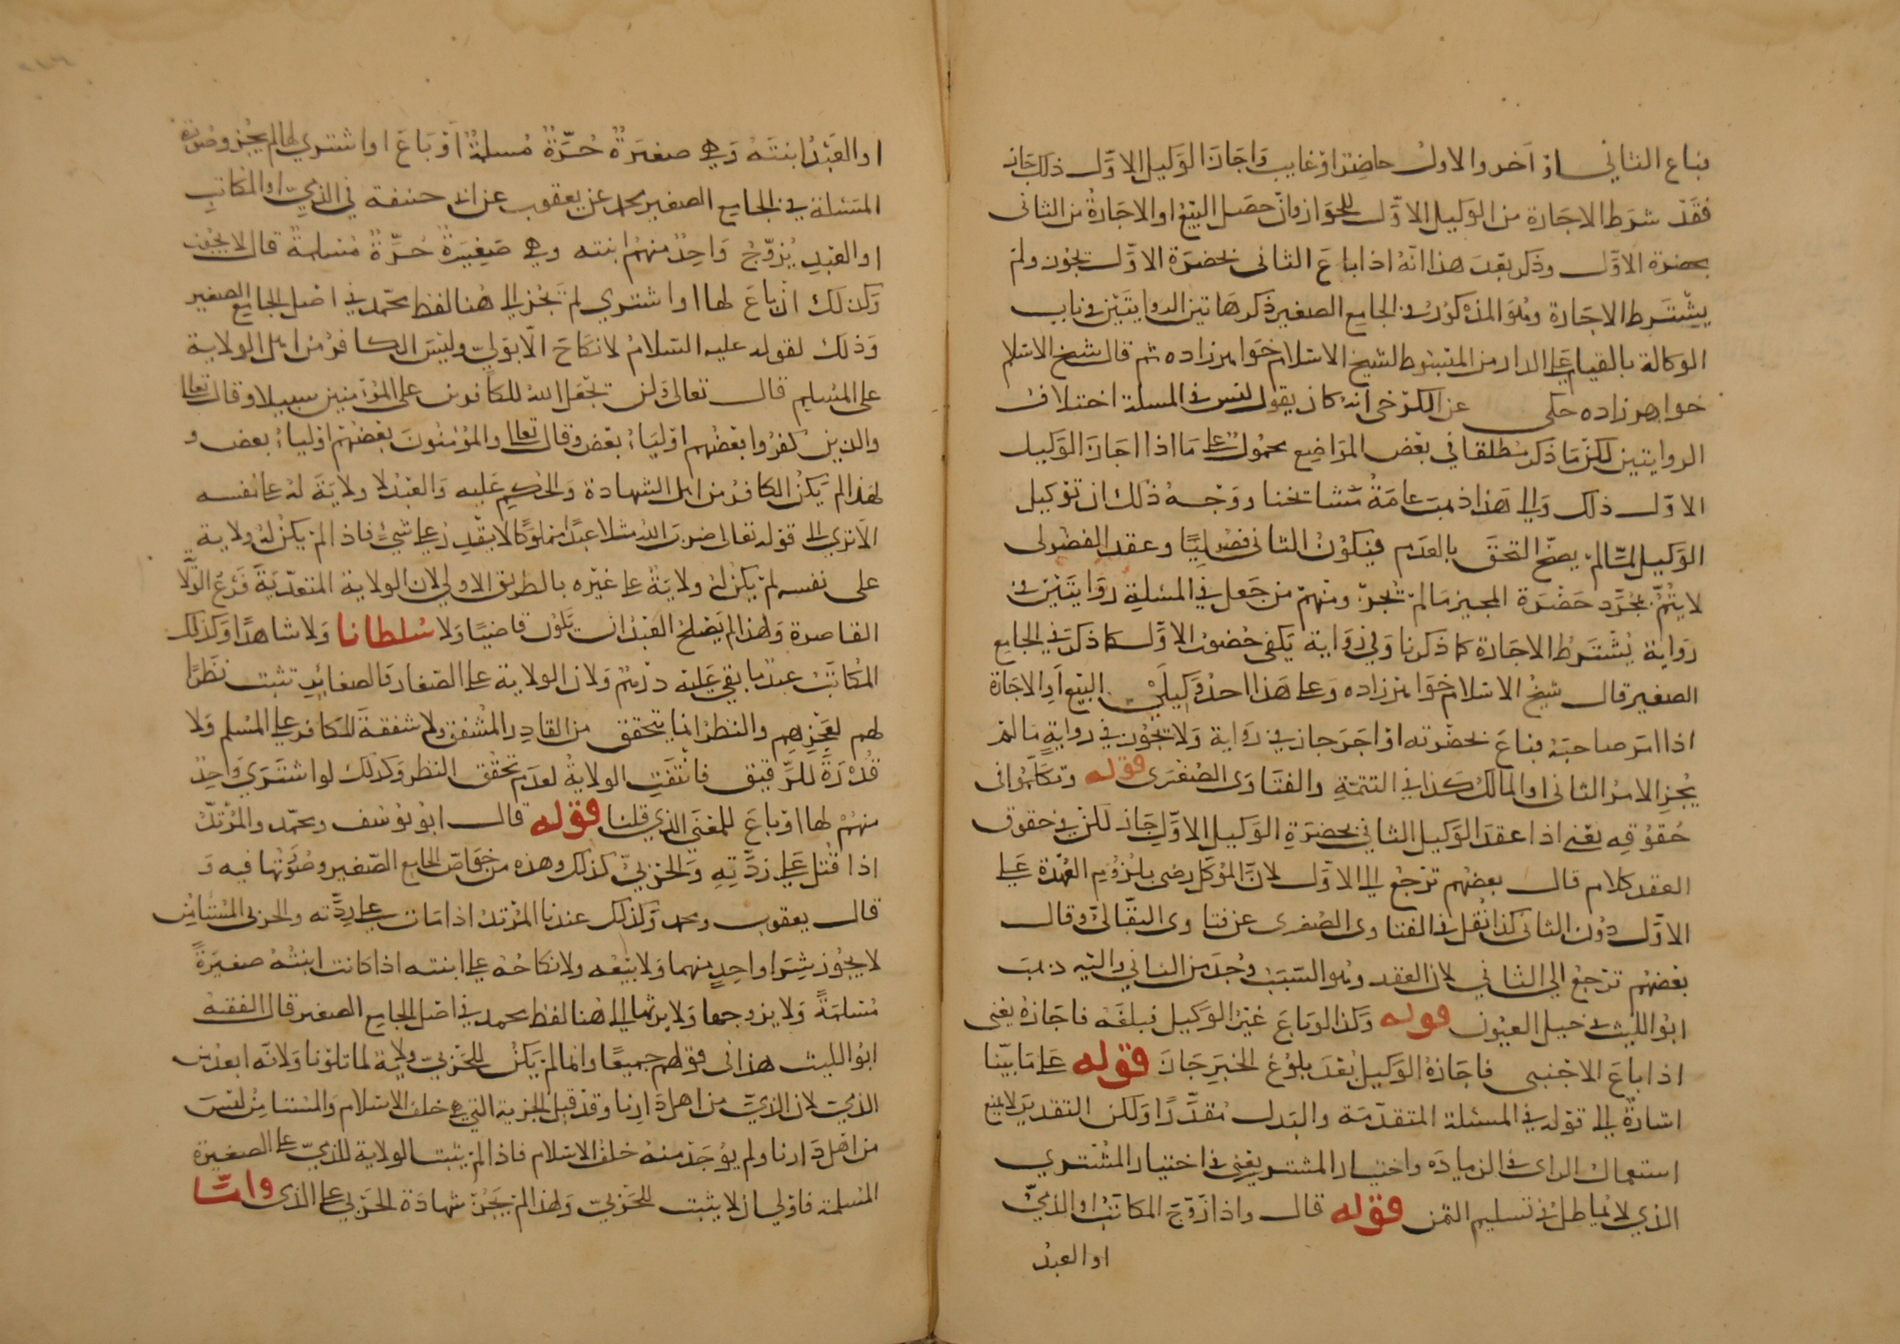 فباع الثاني او آخر والاول حاضر او غايب واجاز الوكيل الاول ذلك جاز
فقد شرط الاجازة من الوكيل الاول للجواز وان حصل البيع او الاجازة من الثاني
بحضرة الاول وذكر بعد هذا انه اذا باع الثاني بحضرة الاول يجوز ولم
يشترط الاجازة وهو المذكور في الجامع الصغير ذكر هاتين الروايتين في باب
الوكالة بالقيام على الدار من المبسوط لشيخ الاسلام خواهر زاده ثم قال شيخ الاسلام
خواهر زاده حكى عن الكرخي انه كان يقول ليس في المسلة اختلاف
الروايتين لكن ما ذكر مطلقا في بعض المواضع محمول على ما اذا اجاز الوكيل
الاول ذلك والى هذا ذهبت عامة مشايخنا ووجه ذلك ان توكيل
الوكيل لما لم يصح التحق بالعدم فيكون الثاني فضوليا وعقد الفضولي
لا يتم بمجرد حضرة المجيز ما لم يجز ومنهم من جعل في المسلة روايتين في
رواية يشترط الاجازة كما ذكرنا وفي رواية يكفي حضور الاول كما ذكر في الجامع
الصغير قال شيخ الاسلام خواهر زاده وعلى هذا احد وكيلي البيع او الاجازة
اذا امر صاحبه فباع بحضرته او اجر جاز في رواية ولا يجوز في رواية ما لم
يجز الامر الثاني او المالك كذا في التتمة والفتاوى الصغرى قوله وتكلموا في
حقوقه يعني اذا عقد الوكيل الثاني بحضرة الوكيل الاول جاز لكن في حقوق
العقد كلام قال بعضهم ترجع الى الاول لان الموكل رضي بلزوم العهدة على
الاول دون الثاني كذا نقل في الفتاوى الصغرى عن فتاوى البقالي وقال
بعضهم ترجع الى الثاني لان العقد وهو السبب وجد من الثاني واليه ذهب
ابو الليث في حيل العيون قوله وكذا لو باع غير الوكيل فبلغه فاجازه يعني
اذا باع الاجنبي فاجازه الوكيل بعد بلوغ الخبر جاز قوله على ما بينا
اشارة الى قوله في المسئلة المتقدمة والبدل مقدرا ولكن التقدير لا يمنع
استعمال الراي في الزيادة واختيار المشتري يعني في اختيار المشتري
الذي لا يماطل في تسليم الثمن قوله قال واذا زوج المكاتب او الذمي
او العبد
او العبد ابنته وهي صغيرة حرة مسلمة او باع او اشترى لها لم يجز وصورة
المسئلة في الجامع الصغير محمد عن يعقوب عن ابي حنيفة في الذمي او المكاتب
او العبد يزوج واحد منهم ابنته وهي صغيرة حرة مسلمة قال لا يجوز
وكذلك ان باع لها او اشترى لم يجز الى هنا لفظ محمد في اصل الجامع الصغير
وذلك لقوله عليه السلام لا نكاح الا بولي وليس الكافر من اهل الولاية
على المسلم قال تعالى ولن يجعل الله للكافرين على المؤمنين سبيلا وقال تعالى
والذين كفروا بعضهم اولياء بعض وقال تعالى والمؤمنون بعضهم اولياء بعض و
لهذا لم يكن الكافر من اهل الشهادة والحكم عليه والعبد لا ولاية له على نفسه
الا ترى الى قوله تعالى ضرب الله مثلا عبدا مملوكا لا يقدر على شيء فاذا لم يكن له ولاية
على نفسه لم يكن له ولاية على غيره بالطريق الاولى لان الولاية المتعدية فرع الولا
القاصرة ولهذا لم يصلح العبد ان يكون قاضيا ولا سلطانا ولا شاهدا وكذلك
المكاتب عبد ما بقي عليه درهم ولان الولاية على الصغار والصغائر تثبت نظرا
لهم لعجزهم والنظر انما يتحقق من القادر المشفق ولا شفقة للكافر على المسلم ولا
قدرة للرقيق فانتفت الولاية لعدم تحقق النظر وكذلك لو اشترى واحد
منهم لها او باع للمعنى الذي قلنا قوله قال ابو يوسف ومحمد والمرتد
اذا قتل على ردته والحربي كذلك وهذه من خواص الجامع الصغير وصورتها فيه و
قال يعقوب ومحمد وكذلك عندنا المرتد اذا مات على ردته والحربي المستامن
لا يجوز شرا واحد منهما ولا بيعه ولا نكاحه على ابنته اذا كانت ابنته صغيرة
مسلمة ولا يزوجها ولا يرثها الى هنا لفظ محمد في اصل الجامع الصغير قال الفقيه
ابو الليث هذا في قولهم جميعا وانما لم يكن للحربي ولاية لما تلونا ولانه ابعد من
الذمي لان الذمي من اهل دارنا وقد قبل الجزية التي هي خلف الاسلام والمستامن ليس
من اهل دارنا ولم يوجد منه خلف الاسلام فاذا لم يثبت الولاية للذمي على الصغيرة
المسلمة فاولى ان لا يثبت للحربي ولهذا لم يجز شهادة الحربي على الذمي واما